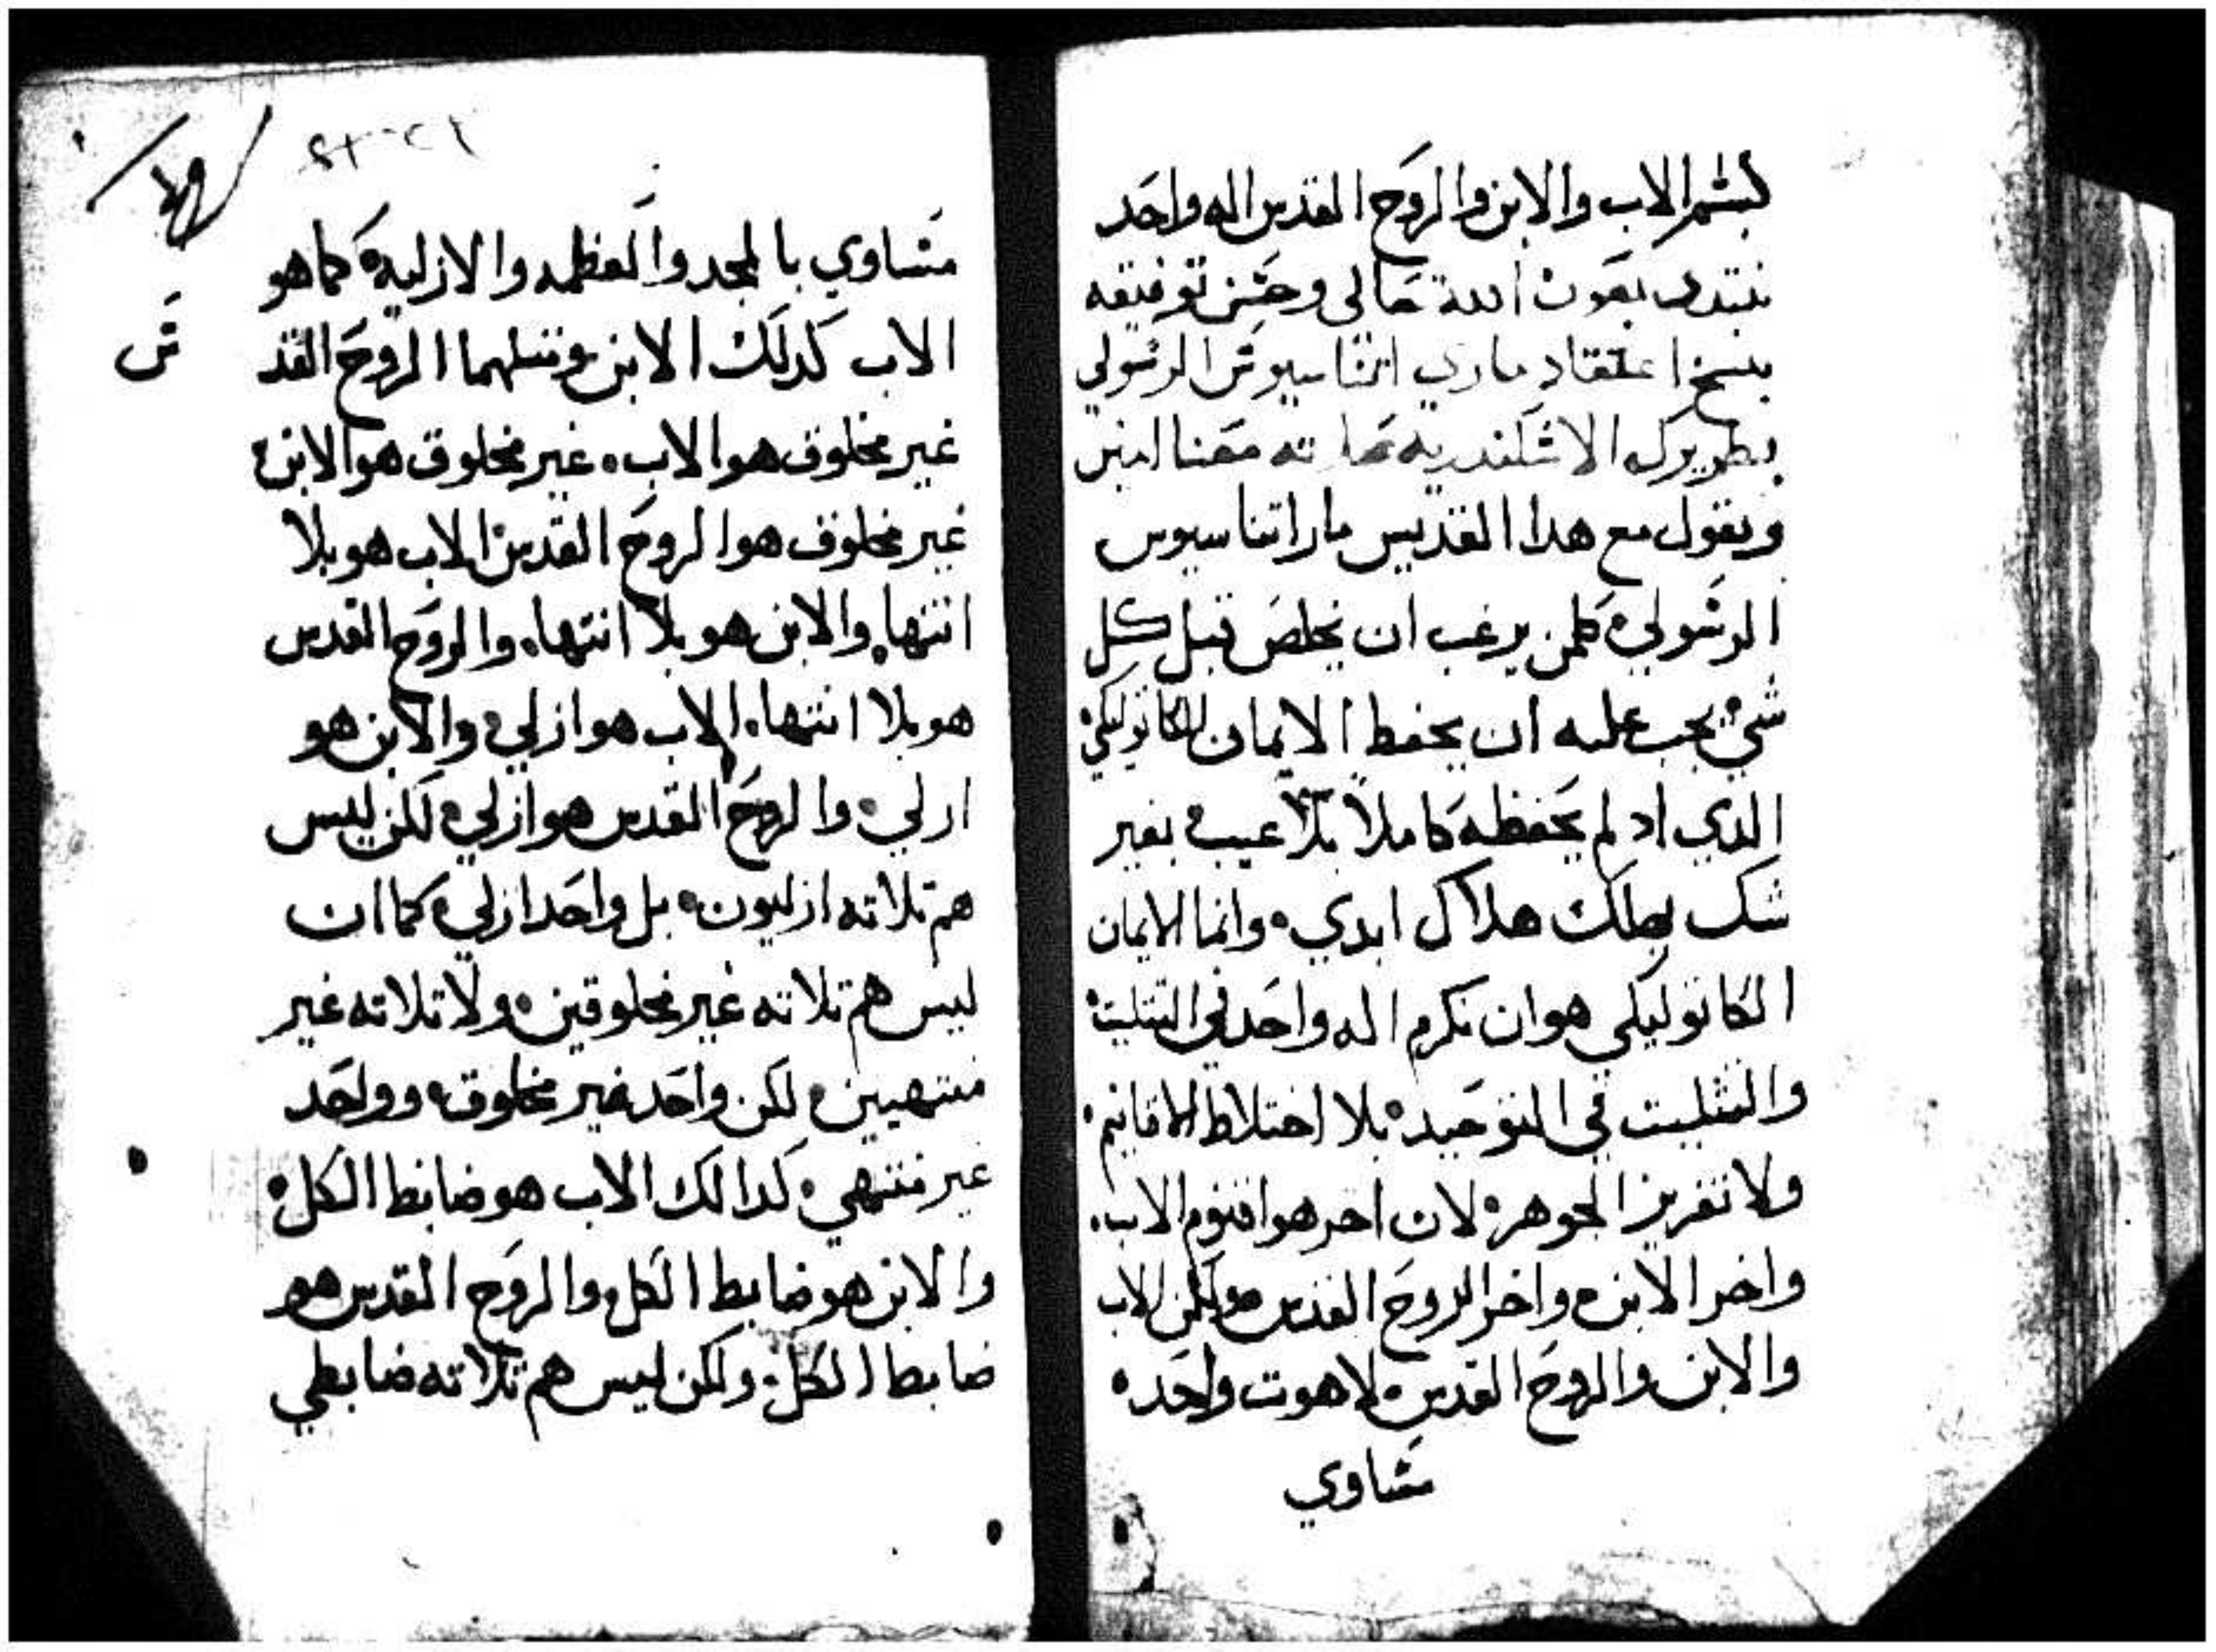 بسم الاب والابن والروح القدس اله واحد
نبتدي بعون الله تعالى وحسن توفيقه
بنسخ اعتقاد ماري اتناسيوس الرسولي
بطريرك الاسكندريه صلاته معنا امين
ونقول مع هدا القديس مار اتناسيوس
الرسولي كلمن يرغب ان يخلص قبل كل
شي يجب عليه ان يحفط الايمان الكاتوليكي
الدي اد لم يحفظه كاملاً بلا عيب بغير
شك يهلك هلاك ابدي وانما الايمان
الكاتوليكي هو ان نكرم اله واحد في التتليت
والتتليت في التوحيد بلا اختلاط الاقانيم
ولا تفريز الجوهر لان اخر هو اقنوم الاب
واخر الابن واخر الروح القدس ولكن الاب
والابن والروح القدس لاهوت واحد
مساوي
متساوي بالمجد والعظمه والازليه كما هو
الاب كدلك الابن ومتلهما الروح القد
س
غير مخلوق هو الاب غير مخلوق هو الابن
غير مخلوق هو الروح القدس الاب هو بلا
انتها والابن هو بلا انتها والروح القدس
هو بلا انتها الاب هو ازلي والابن هو
ازلي والروح القدس هو ازلي لكن ليس
هم تلاته ازليون بل واحد ازلي كما ان
ليس هم تلاته غير مخلوقين ولا تلاته غير
منتهيين لكن واحد غير مخلوق وواحد
غير منتهي كدالك الاب هو ضابط الكل
والابن هو ضابط الكل والروح القدس هو
ضابط الكل ولكن ليس هم تلاته ضابطي